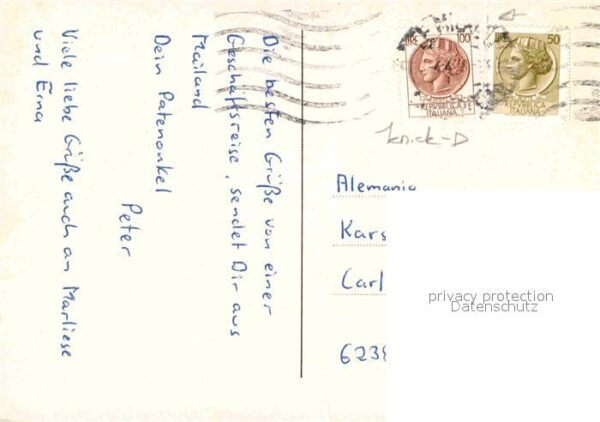 Die besten Grüße von einer
Geschäftsreise, sendet Dir aus
Mailand
Dein Patenonkel
Peter
Viele liebe Grüße auch an Marliese
und Erna
LIRE 100
REPUBBLICA
ITALIANA
LIRE 50
REPUBBLICA
ITALIANA
knick-D
Alemania
Kars
Carl
6238
privacy protection
Datenschutz